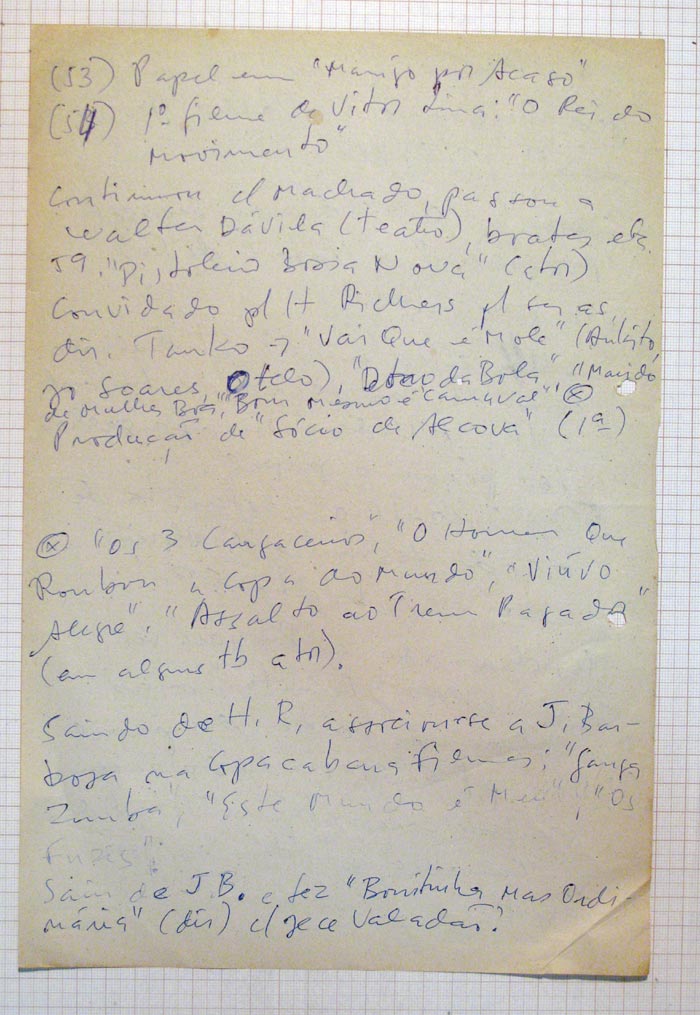 (53) Papel em "Marido por Acaso"
(54) 1º filme de Vitor Lima: "O Rei do
movimento"
Continuou c/ Machado, passou a
Walter Dávila (teatro), boates etc.
59. "Pistoleiro Bossa Nova" (ator)
Convidado p/ H Richers p/ ser as.
dir. Tanko → "Vai Que é Mole" (Ankito
Jo Soares, Otelo), "Dono da Bola", "Marido
de Mulher Boa", "Bom mesmo é carnaval", ⊗
Produção de "Sócio de Alcova" (1ª)
⊗ "Os 3 Cangaceiros", "O Homem Que
Roubou a Copa do Mundo", "Viúvo
Alegre", "Assalto ao Trem Pagador"
(em alguns tb ator).
Saindo de H. R. associou-se a J. Bar-
bosa na Copacabana Filmes: "Ganga
Zumba", "Este Mundo é Meu", "Os
Fuzis".
Saiu de J.B. e fez "Bonitinha Mas Ordi-
nária" (dir) c/ Jece Valadão.